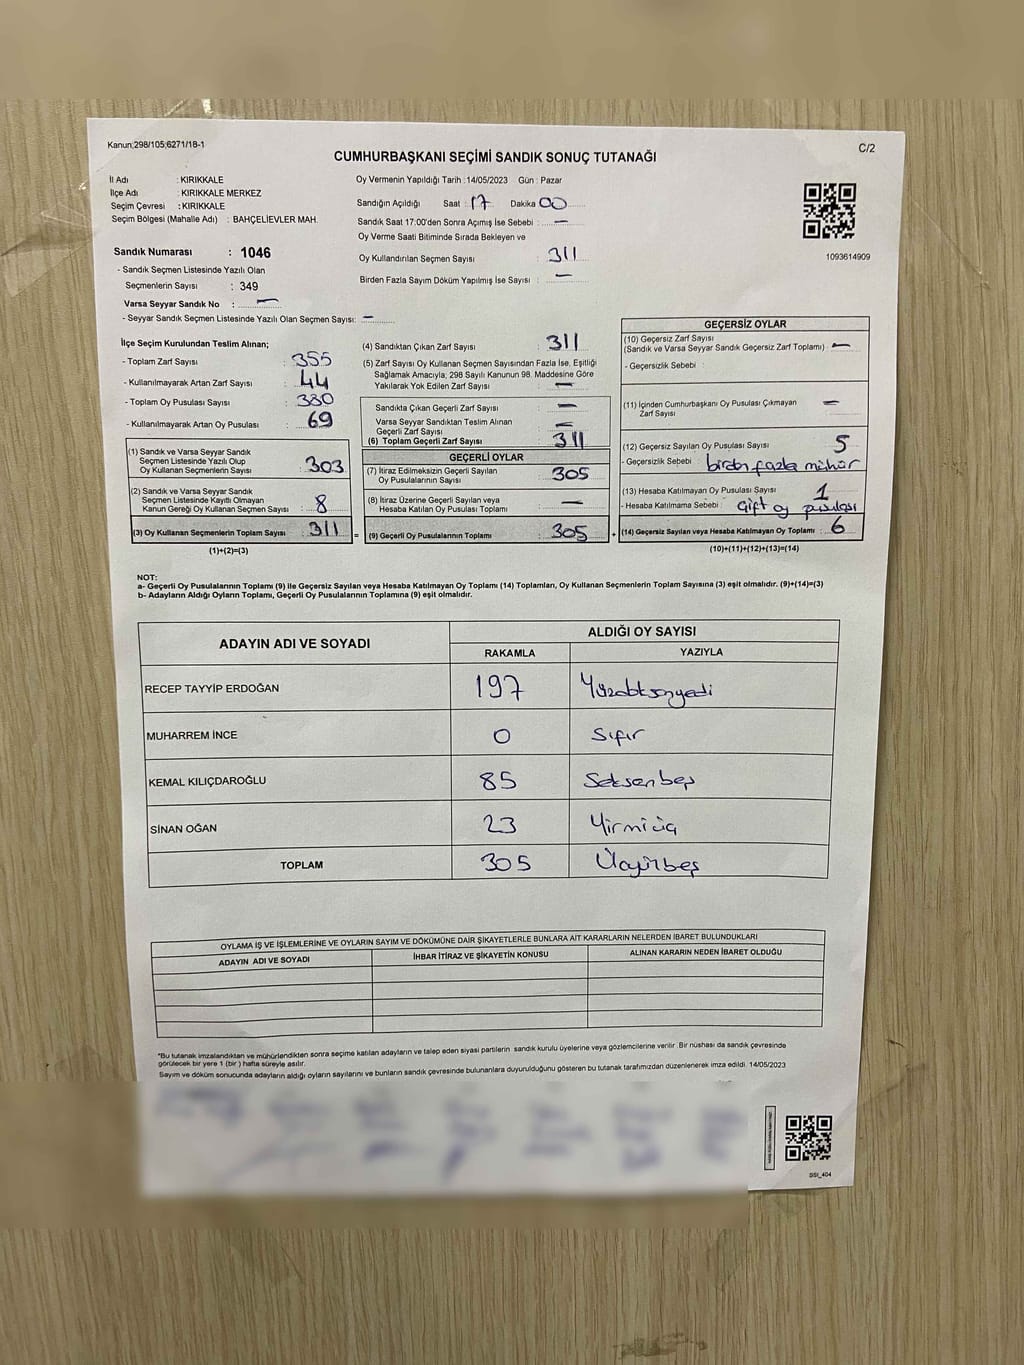 Kanun;298/105;6271/18-1
C/2
CUMHURBAŞKANI SEÇİMİ SANDIK SONUÇ TUTANAĞI
İl Adı : KIRIKKALE
İlçe Adı : KIRIKKALE MERKEZ
Seçim Çevresi : KIRIKKALE
Seçim Bölgesi (Mahalle Adı) : BAHÇELİEVLER MAH.
Oy Vermenin Yapıldığı Tarih :14/05/2023 Gün : Pazar
Sandığın Açıldığı Saat : 17 Dakika 00
Sandık Saat 17:00'den Sonra Açımış İse Sebebi : —
Oy Verme Saati Bitiminde Sırada Bekleyen ve
Oy Kullandırılan Seçmen Sayısı : 311
Birden Fazla Sayım Döküm Yapılmış İse Sayısı : —
1093614909
Sandık Numarası : 1046
- Sandık Seçmen Listesinde Yazılı Olan
Seçmenlerin Sayısı : 349
Varsa Seyyar Sandık No : —
- Seyyar Sandık Seçmen Listesinde Yazılı Olan Seçmen Sayısı: —
İlçe Seçim Kurulundan Teslim Alınan;
- Toplam Zarf Sayısı : 355
- Kullanılmayarak Artan Zarf Sayısı : 44
- Toplam Oy Pusulası Sayısı : 380
- Kullanılmayarak Artan Oy Pusulası : 69
(1) Sandık ve Varsa Seyyar Sandık
Seçmen Listesinde Yazılı Olup
Oy Kullanan Seçmenlerin Sayısı : 303
(2) Sandık ve Varsa Seyyar Sandık
Seçmen Listesinde Kayıtlı Olmayan
Kanun Gereği Oy Kullanan Seçmen Sayısı : 8
(3) Oy Kullanan Seçmenlerin Toplam Sayısı : 311
(1)+(2)=(3)
(4) Sandıktan Çıkan Zarf Sayısı : 311
(5) Zarf Sayısı Oy Kullanan Seçmen Sayısından Fazla İse, Eşitliği
Sağlamak Amacıyla; 298 Sayılı Kanunun 98. Maddesine Göre
Yakılarak Yok Edilen Zarf Sayısı : —
Sandıkta Çıkan Geçerli Zarf Sayısı : —
Varsa Seyyar Sandıktan Teslim Alınan
Geçerli Zarf Sayısı : —
(6) Toplam Geçerli Zarf Sayısı : 311
GEÇERLİ OYLAR
(7) İtiraz Edilmeksizin Geçerli Sayılan
Oy Pusulalarının Sayısı : 305
(8) İtiraz Üzerine Geçerli Sayılan veya
Hesaba Katılan Oy Pusulası Toplamı : —
= (9) Geçerli Oy Pusulalarının Toplamı : 305 +
GEÇERSİZ OYLAR
(10) Geçersiz Zarf Sayısı
(Sandık ve Varsa Seyyar Sandık Geçersiz Zarf Toplamı) : —
- Geçersizlik Sebebi :
(11) İçinden Cumhurbaşkanı Oy Pusulası Çıkmayan
Zarf Sayısı : —
(12) Geçersiz Sayılan Oy Pusulası Sayısı : 5
- Geçersizlik Sebebi : birden fazla mühür
(13) Hesaba Katılmayan Oy Pusulası Sayısı : 1
- Hesaba Katılmama Sebebi : Çift oy pusulası
(14) Geçersiz Sayılan veya Hesaba Katılmayan Oy Toplamı : 6
(10)+(11)+(12)+(13)=(14)
NOT:
a- Geçerli Oy Pusulalarının Toplamı (9) ile Geçersiz Sayılan veya Hesaba Katılmayan Oy Toplamı (14) Toplamları, Oy Kullanan Seçmenlerin Toplam Sayısına (3) eşit olmalıdır. (9)+(14)=(3)
b- Adayların Aldığı Oyların Toplamı, Geçerli Oy Pusulalarının Toplamına (9) eşit olmalıdır.
ADAYIN ADI VE SOYADI
ALDIĞI OY SAYISI
RAKAMLA YAZIYLA
RECEP TAYYİP ERDOĞAN 197 Yüzdoksanyedi
MUHARREM İNCE 0 Sıfır
KEMAL KILIÇDAROĞLU 85 Seksenbeş
SİNAN OĞAN 23 Yirmiüç
TOPLAM 305 Üçyüzbeş
OYLAMA İŞ VE İŞLEMLERİNE VE OYLARIN SAYIM VE DÖKÜMÜNE DAİR ŞİKAYETLERLE BUNLARA AİT KARARLARIN NELERDEN İBARET BULUNDUKLARI
ADAYIN ADI VE SOYADI İHBAR İTİRAZ VE ŞİKAYETİN KONUSU ALINAN KARARIN NEDEN İBARET OLDUĞU
*Bu tutanak imzalandıktan ve mühürlendikten sonra seçime katılan adayların ve talep eden siyasi partilerin sandık kurulu üyelerine veya gözlemcilerine verilir. Bir nüshası da sandık çevresinde
görülecek bir yere 1 (bir) hafta süreyle asılır.
Sayım ve döküm sonucunda adayların aldığı oyların sayılarını ve bunların sandık çevresinde bulunanlara duyurulduğunu gösteren bu tutanak tarafımızdan düzenlenerek imza edildi. 14/05/2023
SSI_404